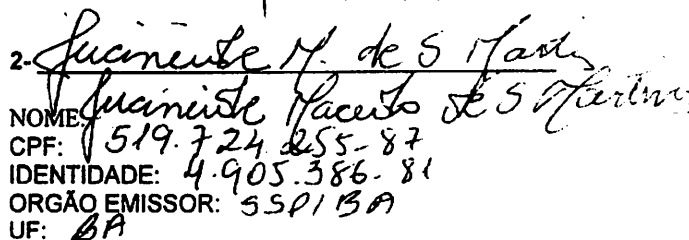 2- Jucineide M. de S Martins
NOME: Jucineide Macedo de S Martins
CPF: 519.724.255-87
IDENTIDADE: 4.905.386-81
ORGÃO EMISSOR: SSP/BA
UF: BA